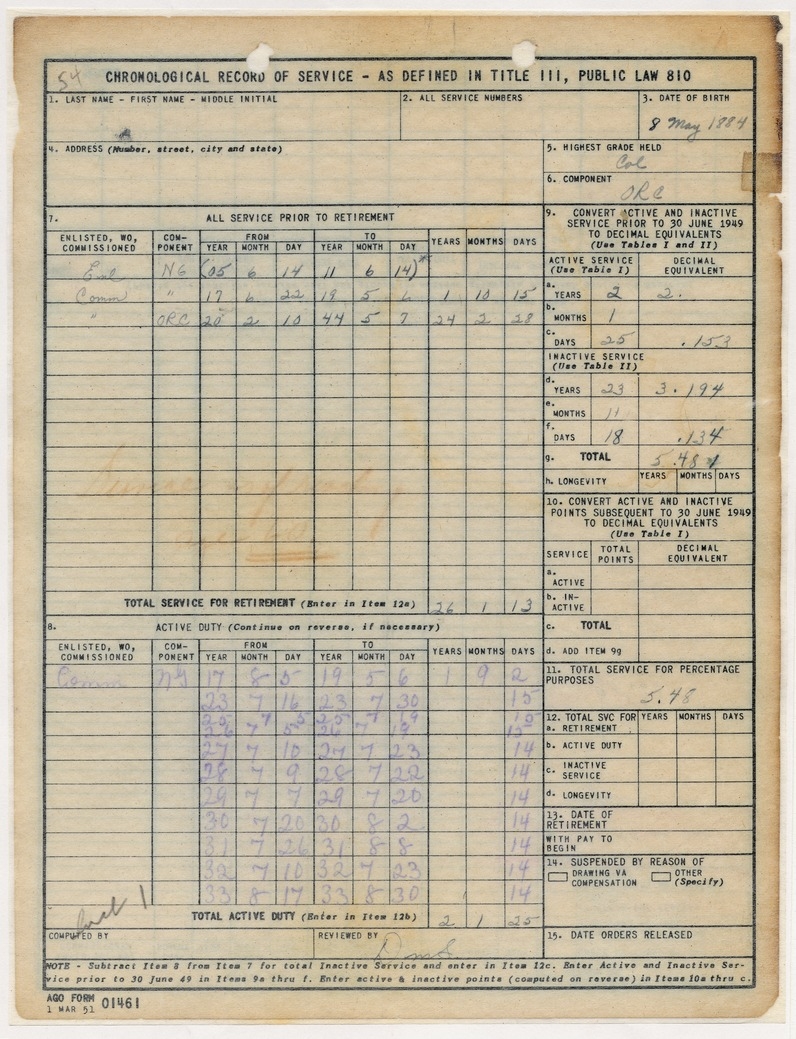 54
CHRONOLOGICAL RECORD OF SERVICE - AS DEFINED IN TITLE III, PUBLIC LAW 810
1. LAST NAME - FIRST NAME - MIDDLE INITIAL
2. ALL SERVICE NUMBERS
3. DATE OF BIRTH
8 May 1884
4. ADDRESS (Number, street, city and state)
5. HIGHEST GRADE HELD
Col
6. COMPONENT
ORC
7. ALL SERVICE PRIOR TO RETIREMENT
ENLISTED, WO, COMMISSIONED COM-PONENT FROM TO YEARS MONTHS DAYS
YEAR MONTH DAY YEAR MONTH DAY
Enl NG (05 6 14 11 6 14)*
Comm " 17 6 22 19 5 6 1 10 15
" ORC 20 2 10 44 5 7 24 2 28
TOTAL SERVICE FOR RETIREMENT (Enter in Item 12a) 26 1 13
8. ACTIVE DUTY (Continue on reverse, if necessary)
ENLISTED, WO, COMMISSIONED COM-PONENT FROM TO YEARS MONTHS DAYS
YEAR MONTH DAY YEAR MONTH DAY
Comm NG 17 8 5 19 5 6 1 9 2
23 7 16 23 7 30 15
25 7 5 25 7 19 15
26 7 5 26 7 19 15
27 7 10 27 7 23 14
28 7 9 28 7 22 14
29 7 7 29 7 20 14
30 7 20 30 8 2 14
31 7 26 31 8 8 14
32 7 10 32 7 23 14
33 8 17 33 8 30 14
TOTAL ACTIVE DUTY (Enter in Item 12b) 2 1 25
COMPUTED BY
REVIEWED BY
9. CONVERT ACTIVE AND INACTIVE
SERVICE PRIOR TO 30 JUNE 1949
TO DECIMAL EQUIVALENTS
(Use Tables I and II)
ACTIVE SERVICE DECIMAL
(Use Table I) EQUIVALENT
a. YEARS 2 2.
b. MONTHS 1
c. DAYS 25 .153
INACTIVE SERVICE
(Use Table II)
d. YEARS 23 3.194
e. MONTHS 11
f. DAYS 18 .134
g. TOTAL 5.481
h. LONGEVITY YEARS MONTHS DAYS
10. CONVERT ACTIVE AND INACTIVE
POINTS SUBSEQUENT TO 30 JUNE 1949
TO DECIMAL EQUIVALENTS
(Use Table I)
SERVICE TOTAL POINTS DECIMAL EQUIVALENT
a. ACTIVE
b. IN-ACTIVE
c. TOTAL
d. ADD ITEM 9g
11. TOTAL SERVICE FOR PERCENTAGE
PURPOSES
5.48
12. TOTAL SVC FOR YEARS MONTHS DAYS
a. RETIREMENT
b. ACTIVE DUTY
c. INACTIVE SERVICE
d. LONGEVITY
13. DATE OF
RETIREMENT
WITH PAY TO
BEGIN
14. SUSPENDED BY REASON OF
DRAWING VA COMPENSATION
OTHER (Specify)
15. DATE ORDERS RELEASED
NOTE - Subtract Item 8 from Item 7 for total Inactive Service and enter in Item 12c. Enter Active and Inactive Ser-
vice prior to 30 June 49 in Items 9a thru f. Enter active & inactive points (computed on reverse) in Items 10a thru c.
AGO FORM 01461
1 MAR 51